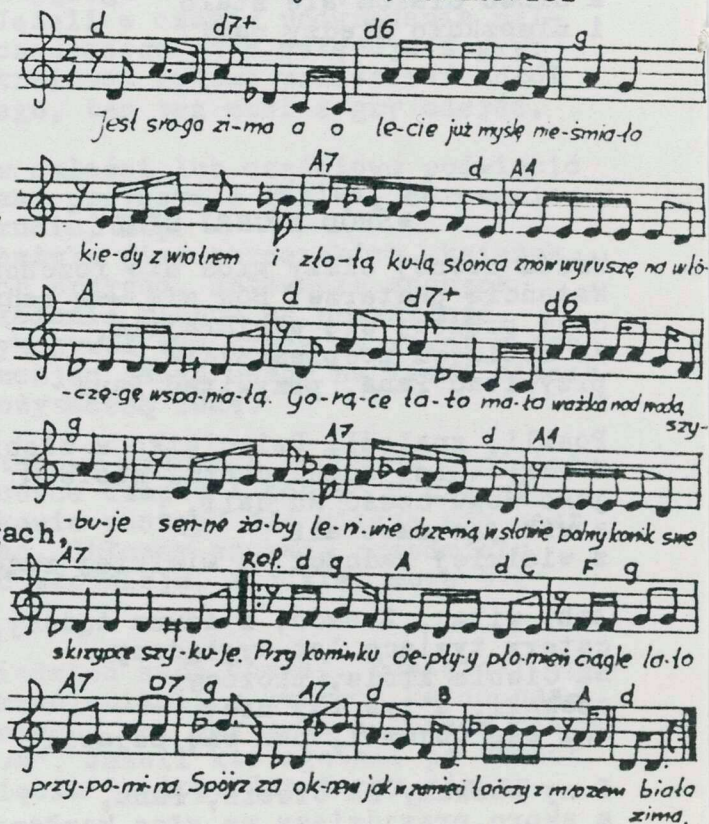 d d7+ d6 g
2
4
Jest sro-ga zi-ma a o le-cie już myślę nie-śmia-ło
A7 d A4
kie-dy z wiatrem i zło-tą ku-lą słońca znów wyruszę na włó-
A d d7+ d6
-czę-gę wspa-nia-łą. Go-rą-ce la-to ma-ła ważka nad wodą,
szy-
g A7 d A4
-bu-je sen-ne ża-by le-ni-wie drzemią w stawie polny konik swe
ach,
A7 Ref. d g A d C F g
skrzypce szy-ku-je. Przy kominku cie-pły-y pło-mień ciągle la-to
A7 D7 g A7 d B A d
przy-po-mi-na. Spójrz za ok-nem jak w zamieci tańczy z mrozem biała
zima.